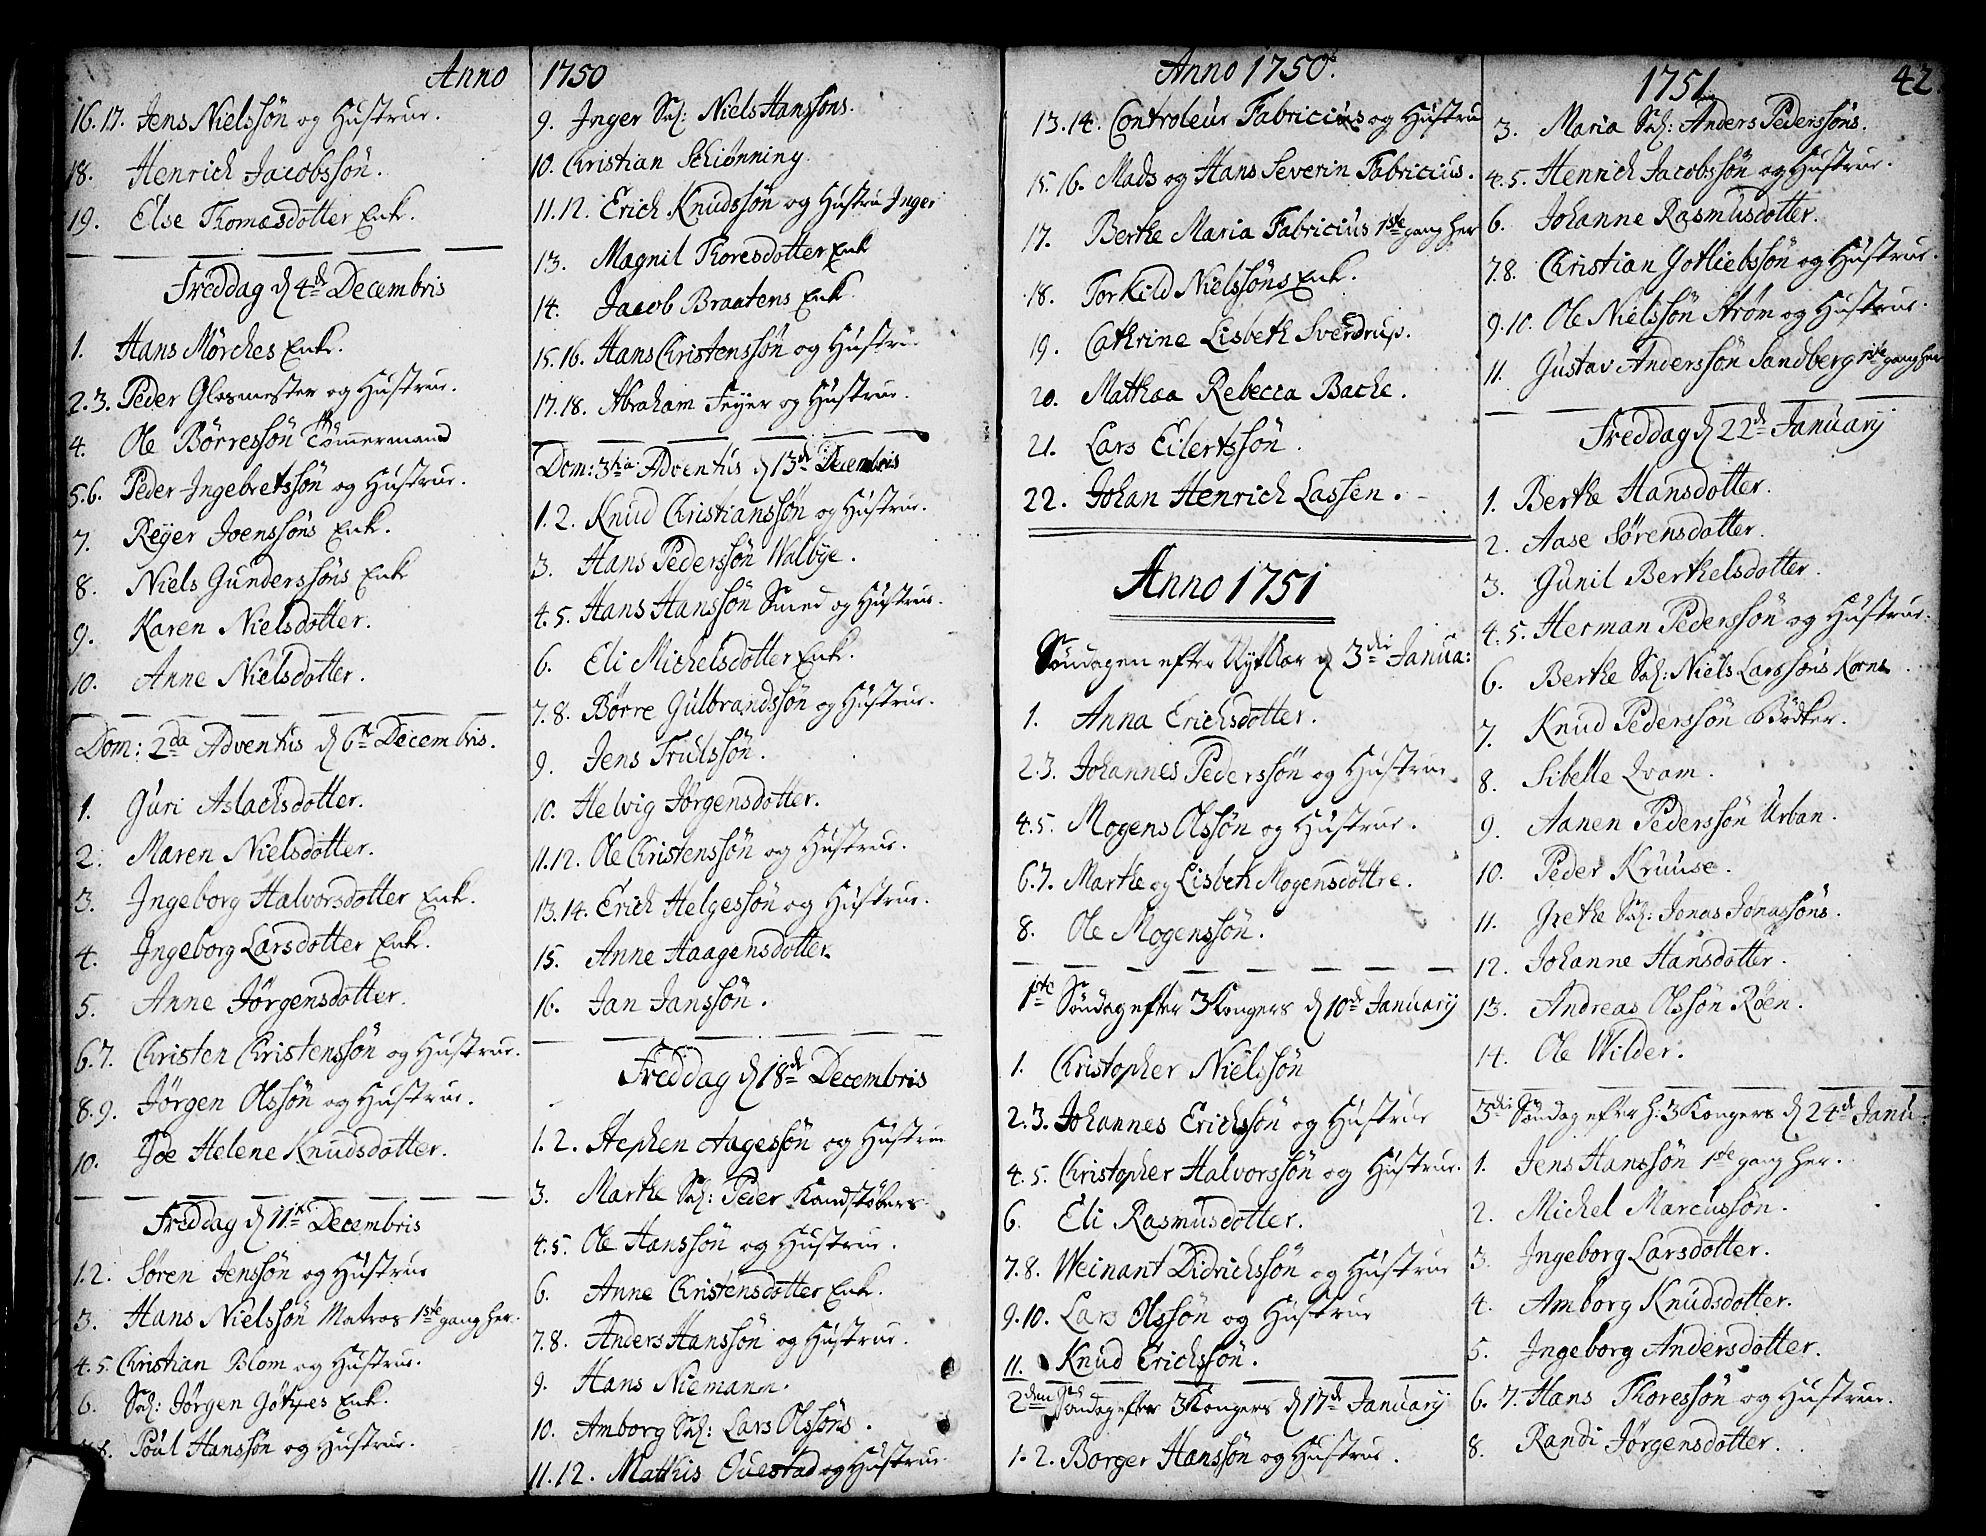 Anno
16. 17. Jens Nielssøn og Hustrue.
18. Henrich Jacobssøn.
19. Else Thomasdotter Enk.
Freddag d 4de Decembris
1. Hans Mörches Enke.
2. 3. Peder Glasmester og Hustrue.
4. Ole Börressön Tömmermand
5. 6. Peder Ingebretssön og Hustrue.
7. Reyer Joenssöns Enk.
8. Niels Gunderssöns Enk
9. Karen Nielsdotter.
10. Anne Nielsdotter.
Dom: 2da Adventus d 6te Decembris.
1. Guri Aslachsdotter.
2. Maren Nielsdotter.
3. Ingeborg Halvorsdotter Enk.
4. Ingeborg Larsdotter Enk.
5. Anne Jörgensdotter.
6. 7. Christen Christenssön og Hustrue.
8. 9. Jörgen Olssön og Hustrue.
10. Helene Knudsdotter.
Freddag d 11te Decembris
1. 2. Sören Jenssön og Hustrue
3. Hans Nielssön Matros 1ste gang her.
4. 5. Christian Blom og Hustrue.
6. Sal: Jörgen Enk.
Poul Hanssön og Hustrue.
1750
9. Inger Sal: Niels Hanssöns.
10. Christian Schiønning.
11. 12. Erich Knudssøn og Hustru Inger
13. Magnil Thoresdotter Enk
14. Jacob Braatens Enk.
15. 16. Hans Christenssøn og Hustru.
17. 18. Abraham Feyer og Hustrue.
Dom: 3tia Adventus d 13de Decembris
1. 2. Knud Christianssøn og Hustrue.
3. Hans Pederssøn Walbye.
4. 5. Hans Hanssøn Smed og Hustrue.
6. Eli Michelsdotter Enk.
7. 8. Børre Gulbrandssøn og Hustrue.
9. Jens Trulssøn.
10. Helvig Jørgensdotter.
11. 12. Ole Christenssøn og Hustrue.
13. 14. Erich Helgessøn og Hustrue.
15. Anne Haagensdotter.
16. Jan Janssøn.
Freddag d 18de Decembris
1. 2. Stephen Aagessøn og Hustrue
3. Marthe Sal: Peder Kandstøbers
4. 5. Ole Hanssøn og Hustrue.
6. Anne Christensdotter Enk.
7. 8. Anders Hanssøn og Hustrue.
9. Hans Niemann.
10. Amborg Sal: Lars Olssøns.
11. 12. Matthis Questad og Hustrue
Anno 1750.
13. 14. Controleur Fabricius og Hustru
15. 16. Mads og Hans Severin Fabricius.
17. Berthe Maria Fabricius 1ste gang her
18. Torkild Nielssøns Enk.
19. Cathrine Lisbeth Sverdrup.
20. Mathæa Rebecca Bache.
21. Lars Eilertssøn.
22. Johan Henrich Lassen.
Anno 1751
Søndagen efter Nytaar d 3die Janua:
1. Anna Erichsdotter.
2. 3. Johannes Pederssøn og Hustrue
4. 5. Mogens Olssøn og Hustrue.
6. 7. Marthe og Lisbeth Mogensdøttre.
8. Ole Mogenssøn.
1ste Søndag efter 3 Kongers d 10de Januarij
1. Christopher Nielssøn
2. 3. Johannes Erichssøn og Hustrue
4. 5. Christopher Halvorssøn og Hustrue.
6. Eli Rasmusdotter.
7. 8. Weinant Didrichssøn og Hustrue
9. 10. Lars Olssøn og Hustrue
11. Knud Erichssøn.
2den Søndag efter 3 Kongers d 17de Januarij
1. 2. Borger Hanssøn og Hustrue.
1751 42.
3. Maria Sal: Anders Pederssøns.
4. 5. Henrich Jacobssøn og Hustrue.
6. Johanne Rasmusdotter.
7. 8. Christian Gotliebssøn og Hustrue.
9. 10. Ole Nielssøn Strøm og Hustrue.
11. Gustav Anderssøn Sandberg 1ste gang her
Freddag d 22de Januarij
1. Berthe Hansdotter.
2. Aase Sørensdotter.
3. Gunil Berthelsdotter.
4. 5. Herman Pederssøn og Hustrue.
6. Berthe Sal: Niels Larssøns Korns.
7. Knud Pederssøn Bødker.
8. Sibelle Qvam.
9. Aanen Pederssøn Urban.
10. Peder Kruuse.
11. Grethe Sal: Jonas Jonassøns.
12. Johanne Hansdotter.
13. Andreas Olssøn Røen.
14. Ole Wilder.
3die Søndag efter H: 3 Kongers d 24de Janu:
1. Jens Hanssøn 1ste gang her.
2. Michel Marcussøn.
3. Ingeborg Larsdotter.
4. Amborg Knudsdotter.
5. Ingeborg Andersdotter.
6. 7. Hans Thoressøn og Hustrue.
8. Randi Jørgensdotter.